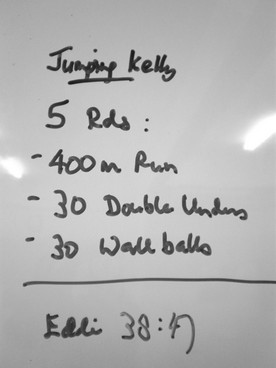 Jumping Kelly
5 Rds:
- 400m Run
- 30 Double Unders
- 30 Wall balls
Eddi 38:47